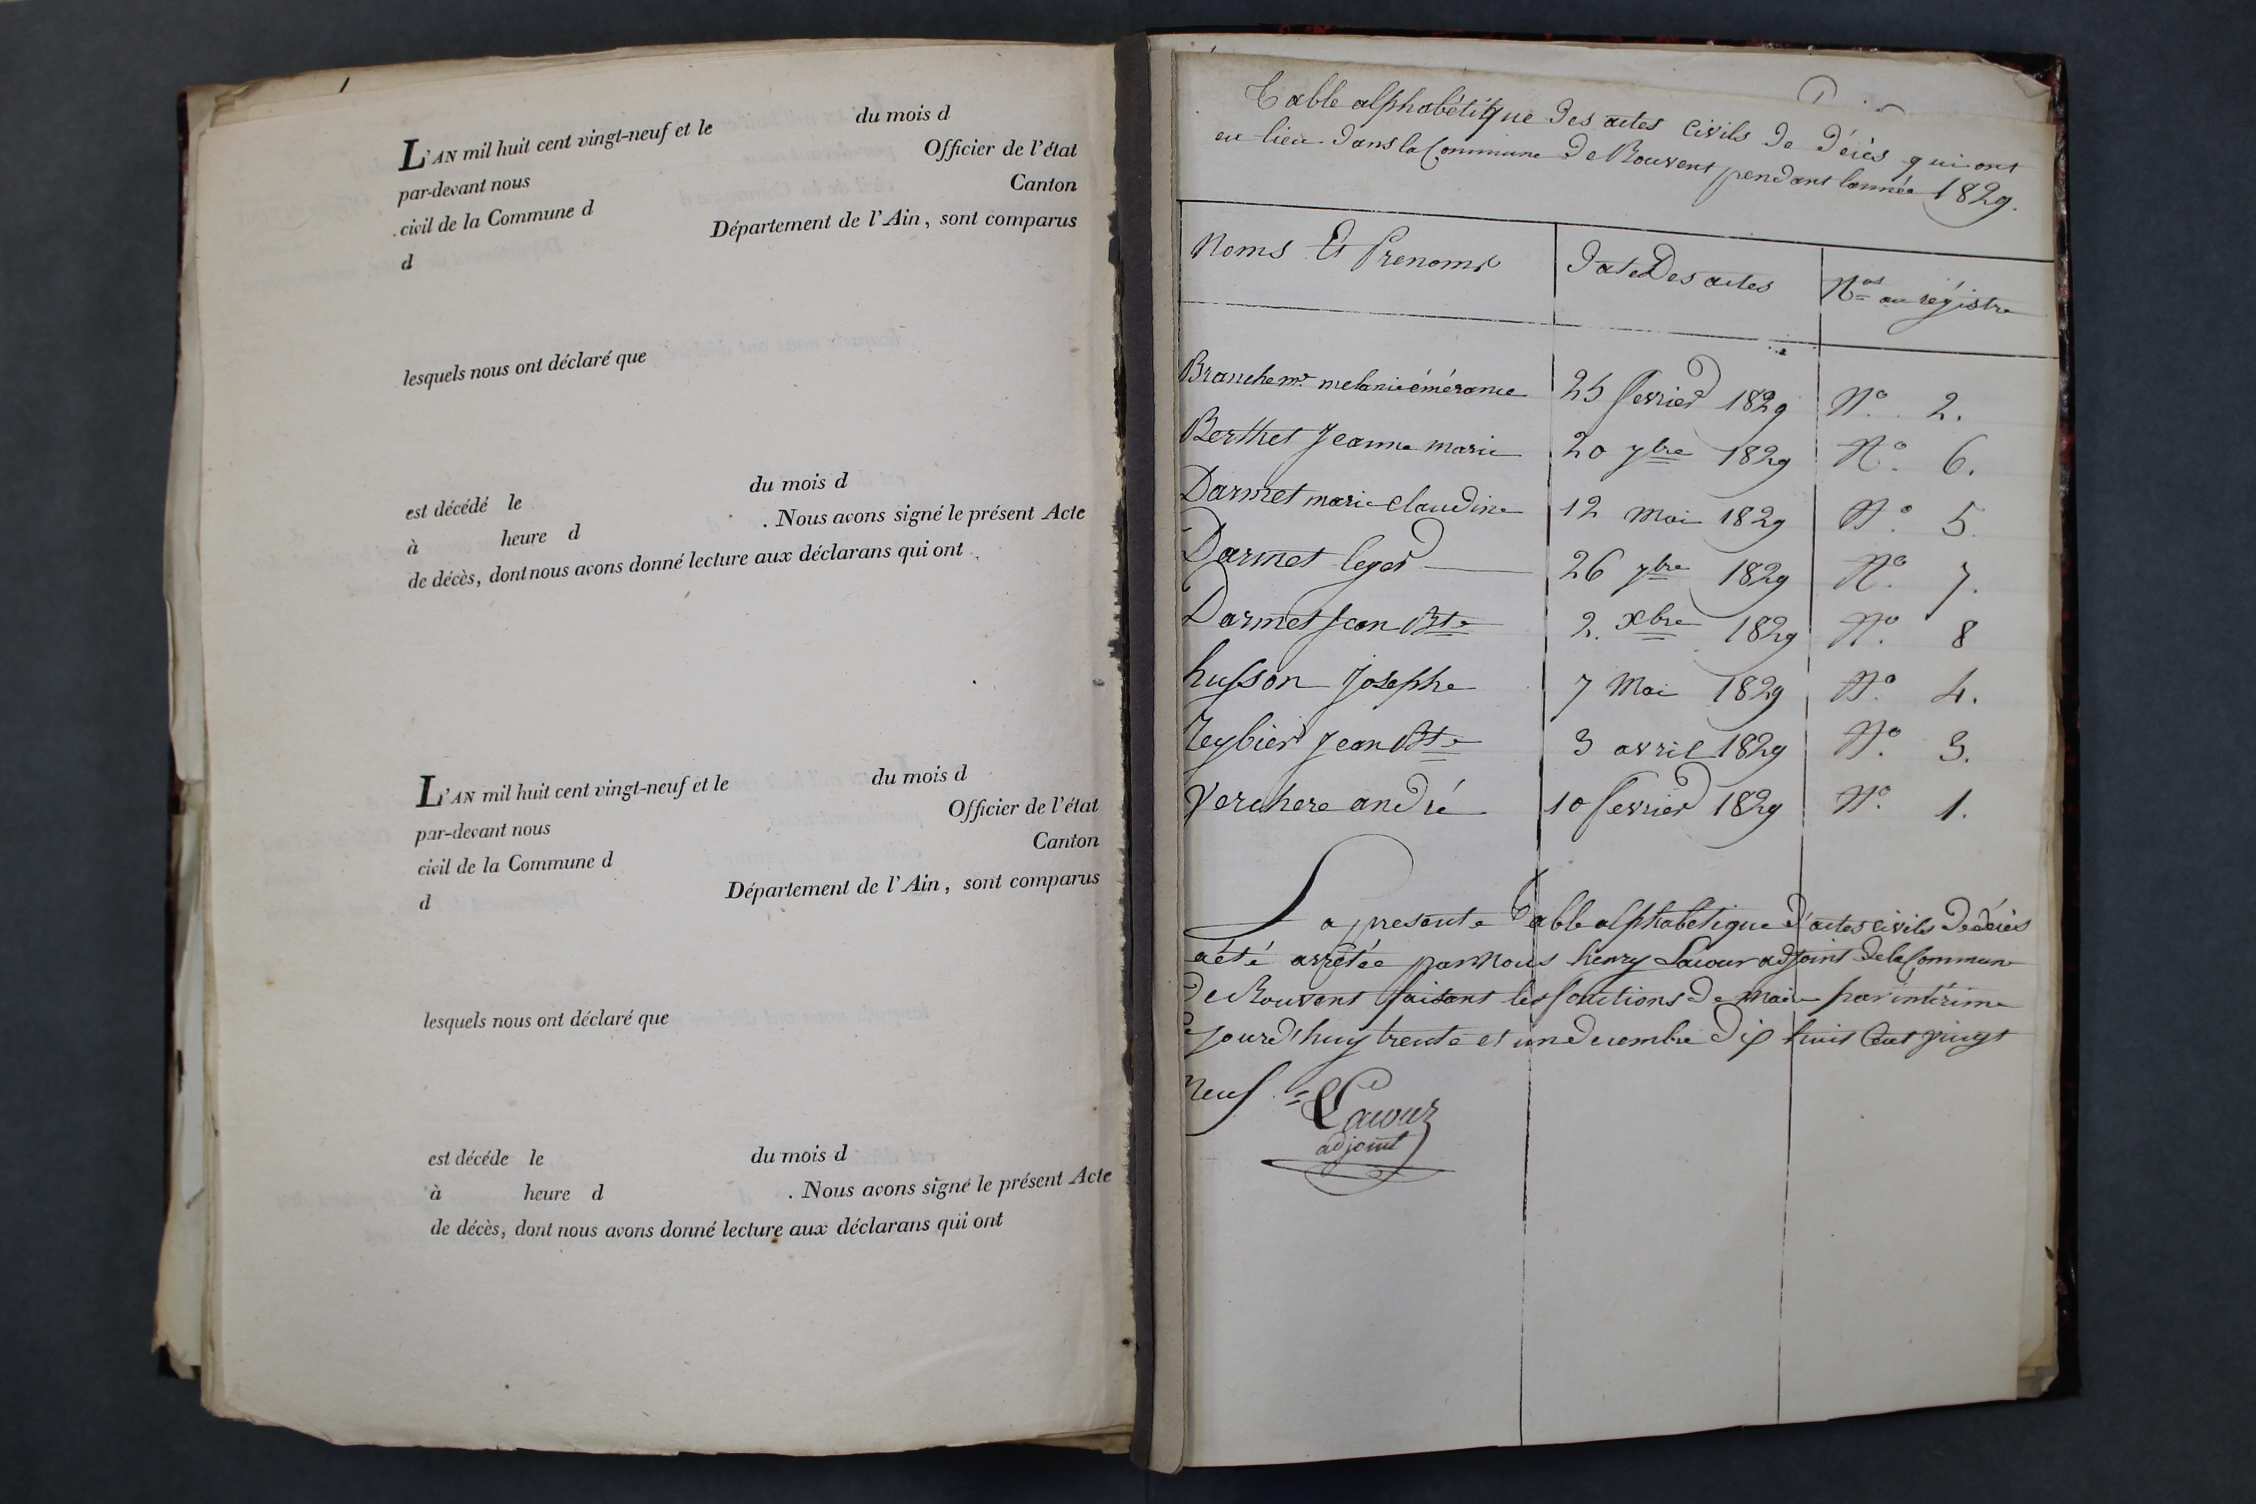 L'AN mil huit cent vingt-neuf et le du mois d
par-devant nous Officier de l'état
civil de la Commune d Canton
d Département de l'Ain, sont comparus
lesquels nous ont déclaré que
est décédé le du mois d
à heure d . Nous avons signé le présent Acte
de décès, dont nous avons donné lecture aux déclarans qui ont
L'AN mil huit cent vingt-neuf et le du mois d
par-devant nous Officier de l'état
civil de la Commune d Canton
d Département de l'Ain, sont comparus
lesquels nous ont déclaré que
est décéde le du mois d
à heure d . Nous avons signé le présent Acte
de décès, dont nous avons donné lecture aux déclarans qui ont
Table alphabétique des actes civils de décès qui ont
eu lieu dans la Commune de Rouvent pendant lannée 1829.
Noms Et Prenoms Date Des actes Nos au régistre
melanie émérance 25 fevrier 1829 No. 2.
Berthet Jeanne marie 20 7bre 1829 No. 6.
Darmet marie claudine 12 Mai 1829 No. 5.
Darmet leger 26 7bre 1829 No. 7.
Darmet Jean Bte 2. Xbre 1829 No. 8
husson Josephe 7 Mai 1829 No. 4.
Teybier Jean Bte 3 avril 1829 No. 3.
Verchere andré 10 fevrier 1829 No. 1.
La presente Table alphabetique d'actes civils de décès
a été arrêtée par Nous henry Lacour adjoint de la Commune
de Rouvent faisant les fonctions de maire par intérime
ce jourd'huy trente et un decembre dix huit Cent vingt
neuf.
Lacour
adjoint